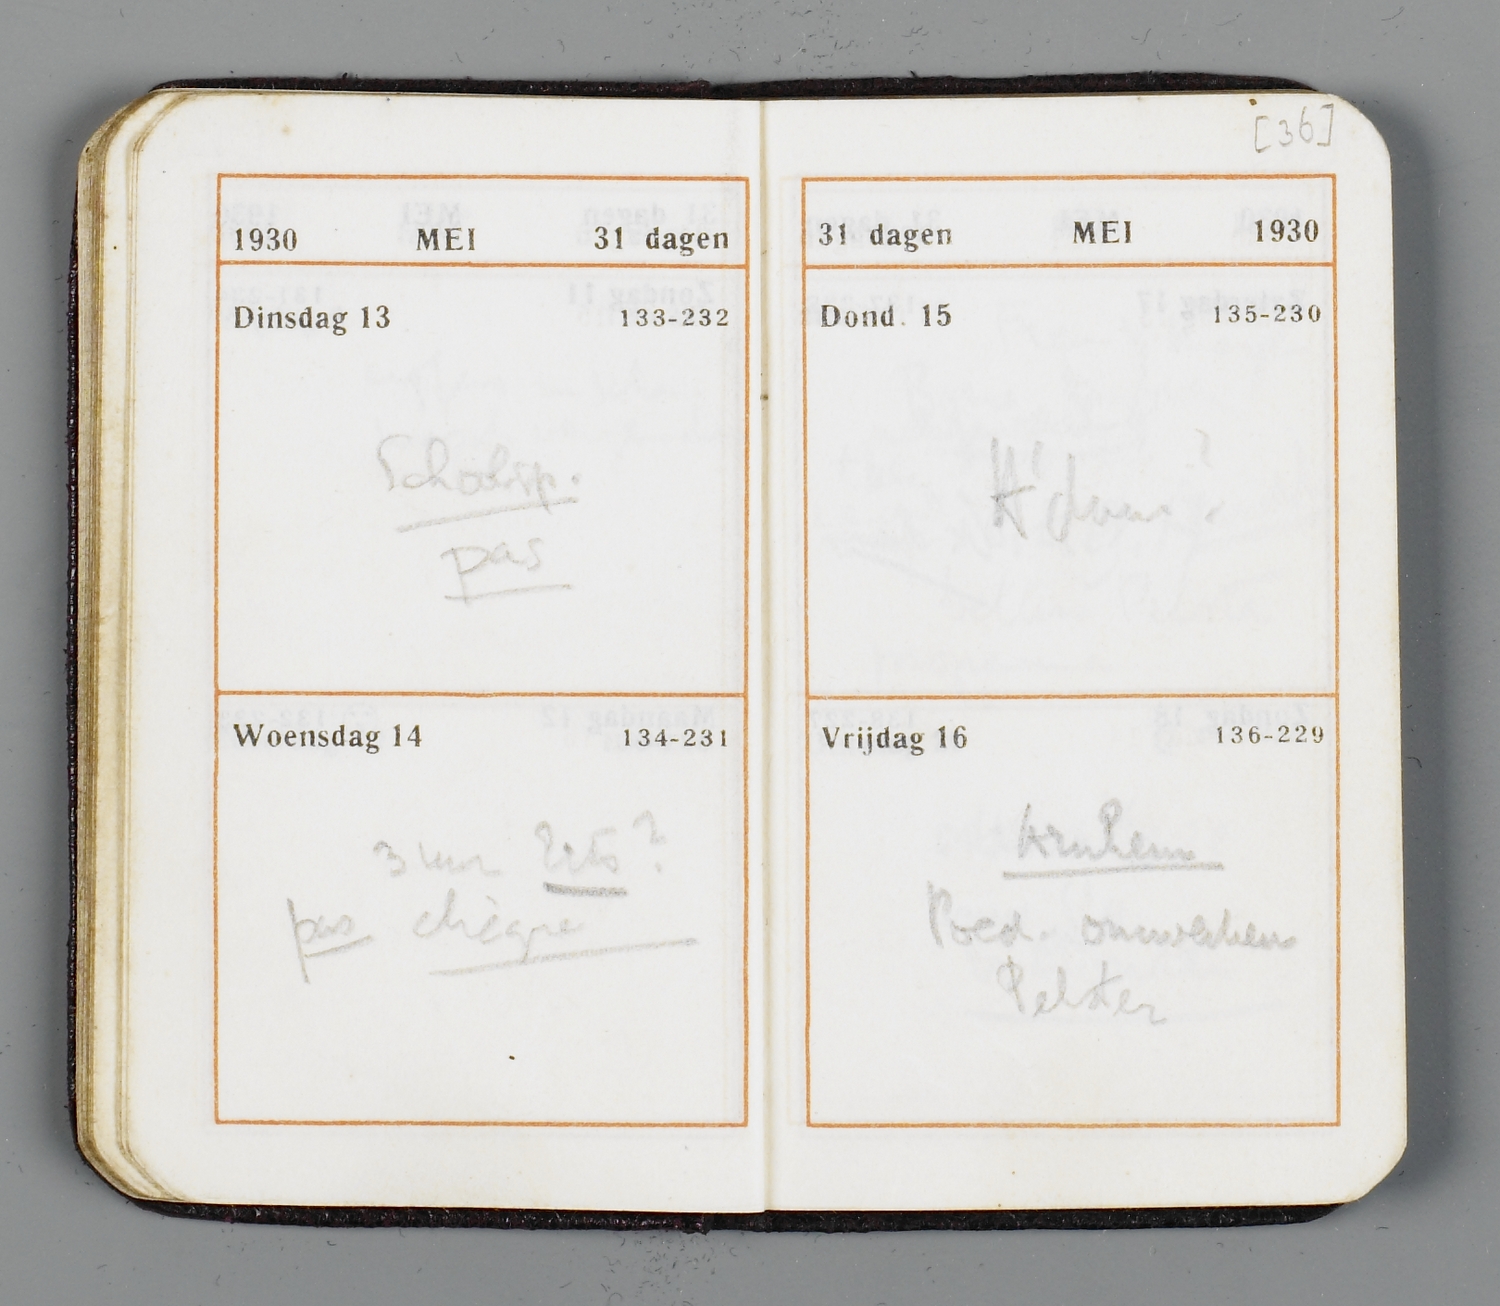 [36]
1930 MEI 31 dagen
Dinsdag 13 133-232
pas
Woensdag 14 134-231
3 uur ?
pas chèque
31 dagen MEI 1930
Dond. 15 135-230
A'dam?
Vrijdag 16 136-229
Arnhem
Poed. omwerken
Pelster